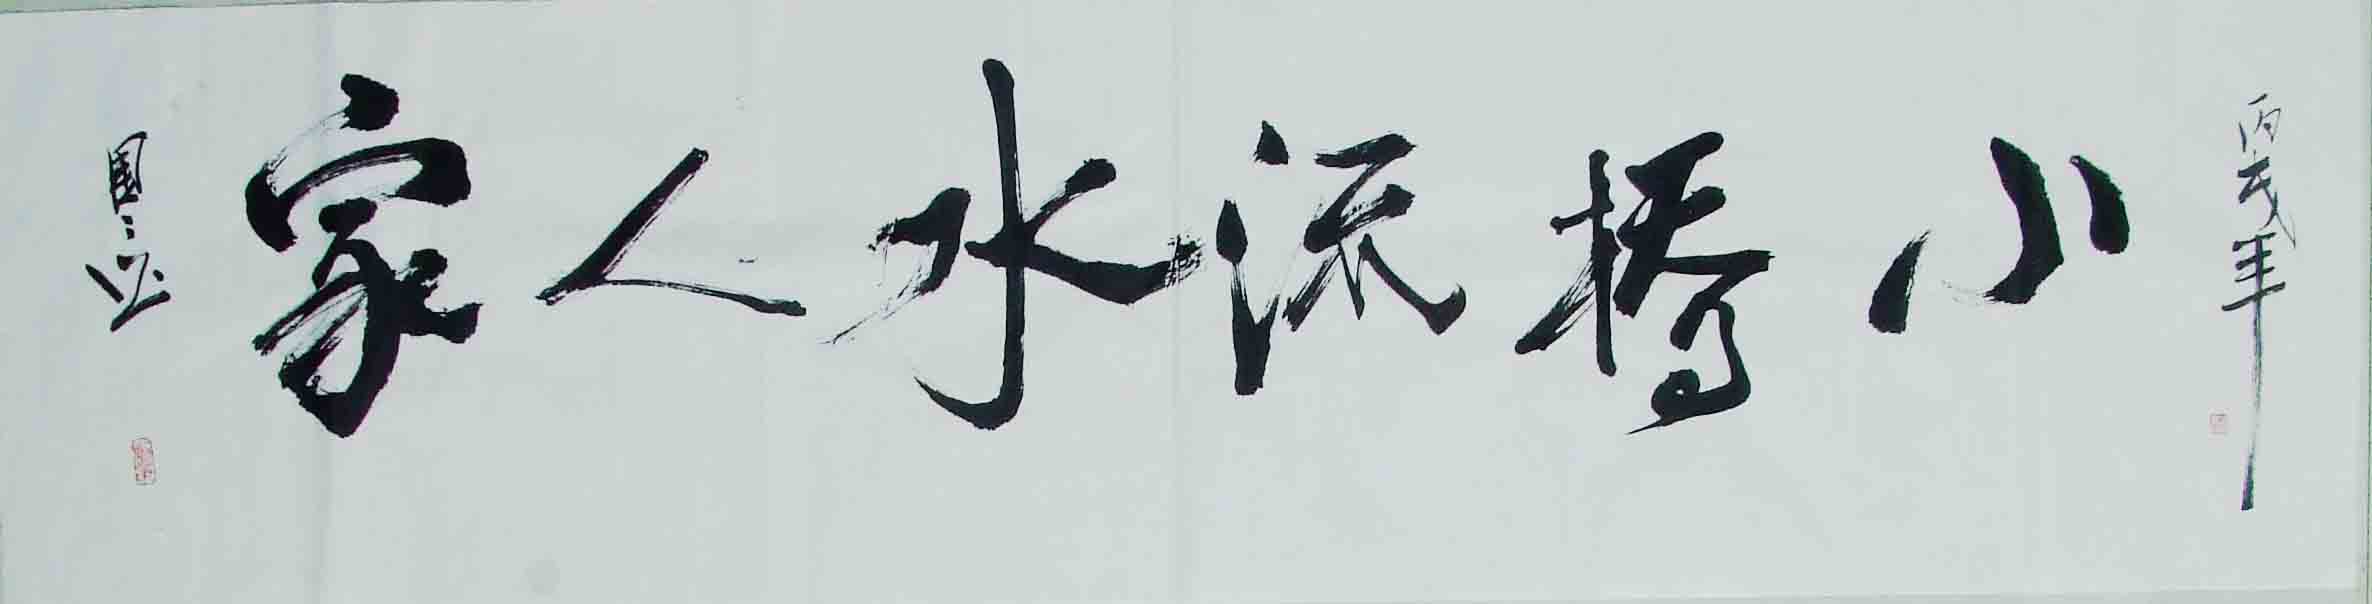 丙戌年
小橋流水人家